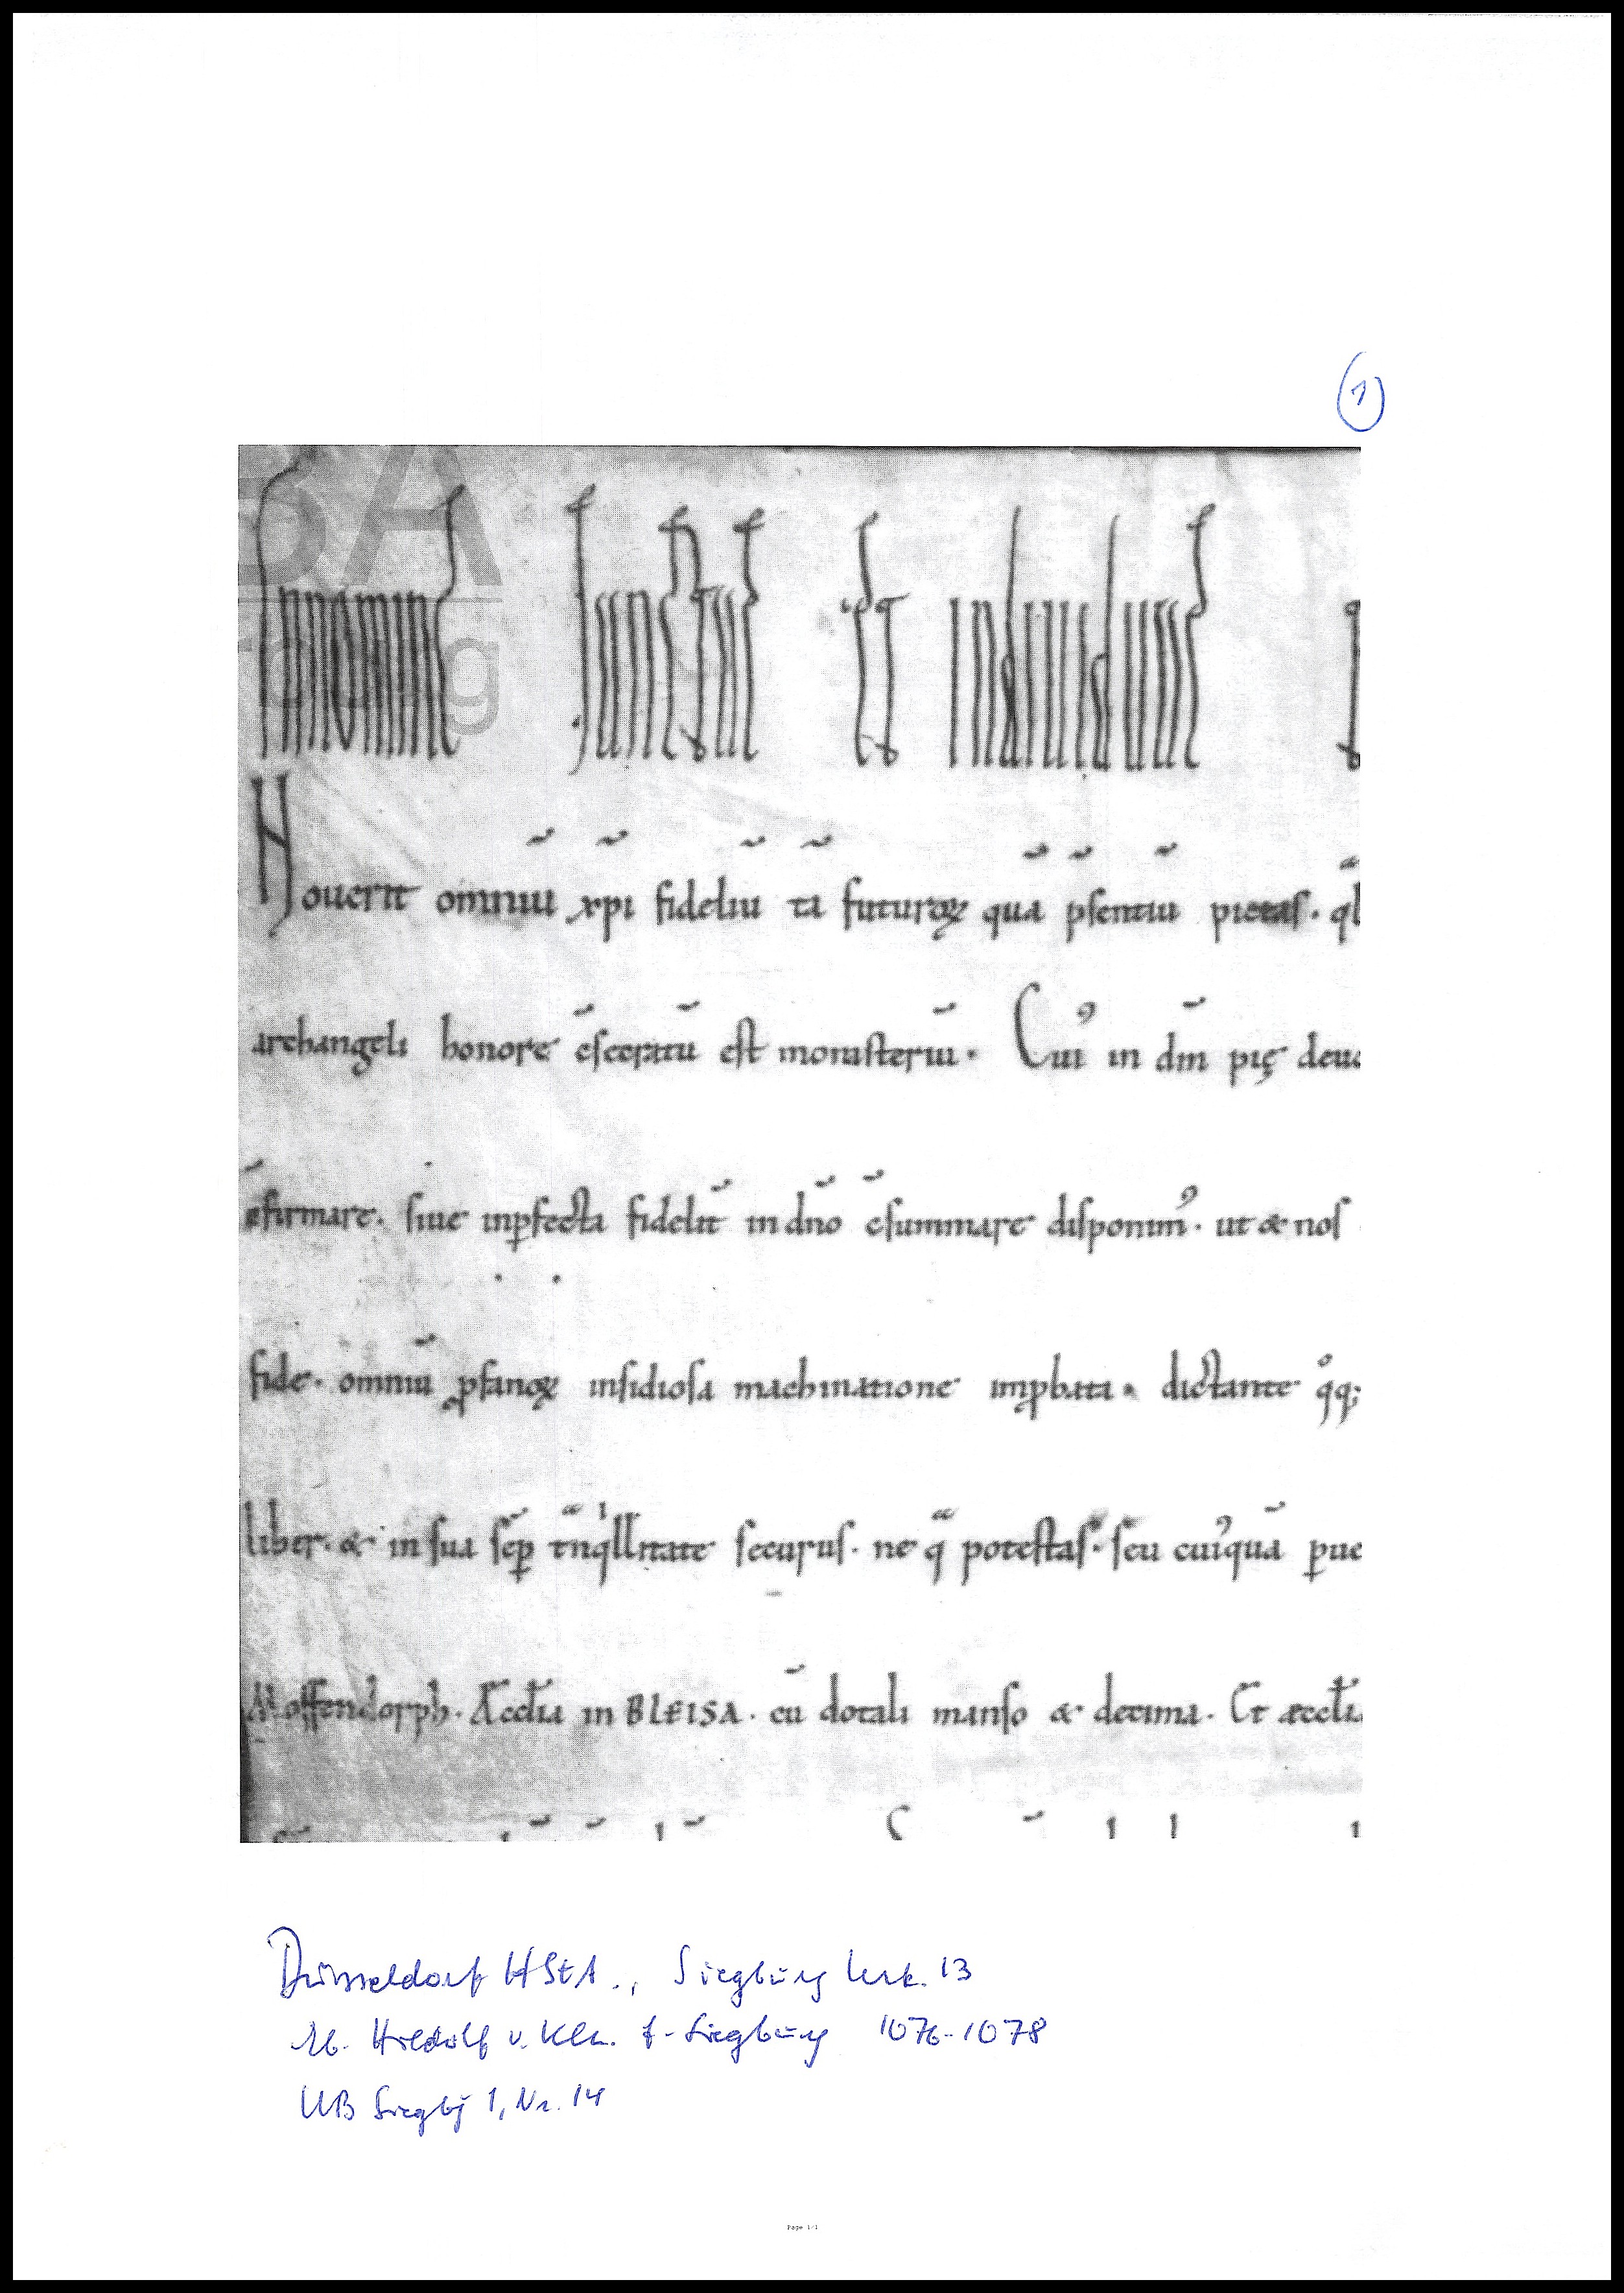 ①
In nomine sanctae et individuae
Nouerit omniū xp̄i fideliū tā futuroꝝ quā p̄sentiū pietas· q̄
archangeli honore c̄secratū est monasteriū· Cui᷒ in dn̄i pię deuo
c̄firmare· siue inꝑfecta fidelit̄ in dn̄o c̄summare disponim᷒· ut & nos
fide· omniū ꝓfanoꝝ insidiosa machinatione imꝓbata· dictante qͦq;
liber· & in sua sēꝑ tnqͥllitate securus· ne qᷓ potestas· seu cui᷒quā ꝑue
Moffendorph· Æccl̄ia in BLEISA· cū dotali manso & decima· Et æccl̄ia
Düsseldorf HStA., Siegburg Urk. 13
Eb. Hildolf v. Köln f. Siegburg 1076-1078
UB Siegbg 1, Nr. 14
Page 1/1